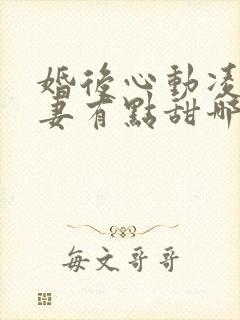 婚後心動凌
妻有點甜哪
每文哥哥